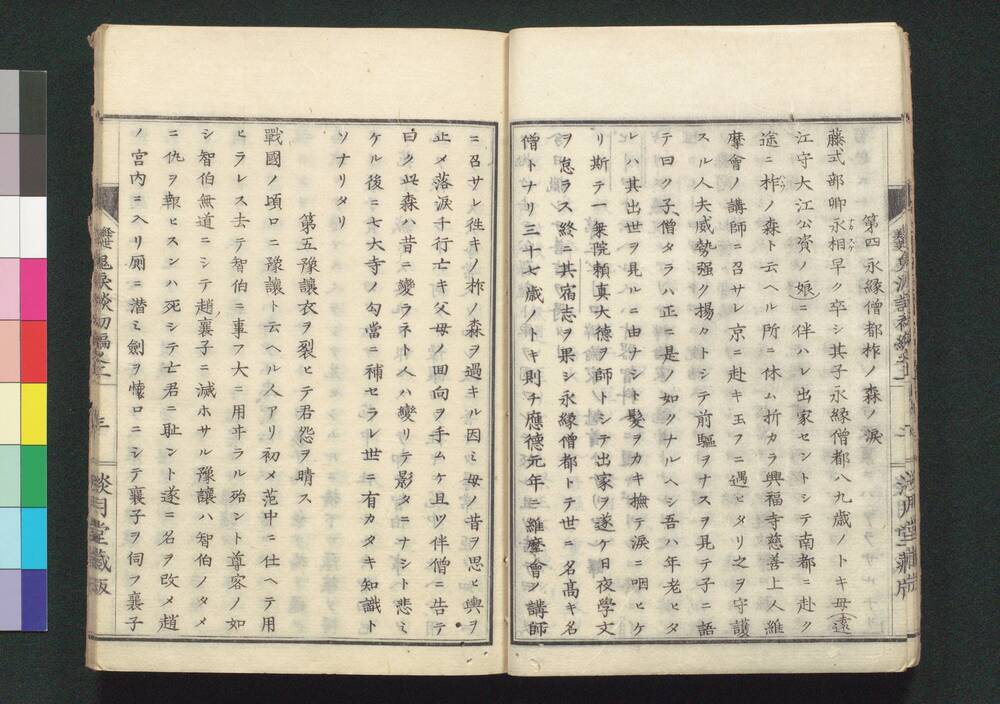 第四永縁僧都柞ノ森ノ涙
藤式部卿永相早ク卒シ其子永縁僧都八九歳ノトキ母(遠
江守大江公資ノ娘)ニ伴ハレ出家セントシテ南都ニ赴ク
途ニ柞ノ森ト云ヘル所ニ休ム折カラ興福寺慈善上人維
摩會ノ講師ニ召サレ京ニ赴キ玉フニ遇ヒタリ之ヲ守護
スル人夫威勢强ク揚カトシテ前驅ヲナスヲ見テ子ニ語
テ曰ク子、僧タラハ正ニ是ノ如クナルヘシ吾ハ年老ヒタ
レハ其出世ヲ見ルニ由ナシト髮ヲカキ撫テ涙ニ咽ヒケ
リ斯テ一乗院頼真大德ヲ師トシテ出家ヲ遂ケ日夜學文
ヲ怠ラス終ニ其宿志ヲ果シ永縁僧都トテ世ニ名高キ名
僧トナリ三十七歳ノトキ則チ應德元年ニ維摩會ノ講師
ニ召サレ徃キノ柞ノ森ヲ過キル因ミ母ノ昔ヲ思ヒ輿ヲ
止メ落涙千行亡キ父母ノ回向ヲ手ムケ且ツ伴僧ニ告テ
曰ク此森ハ昔ニ變ラネト人ハ變リテ影タニナシト悲ミ
ケル後ニ七大寺ノ勾當ニ補セラレ世ニ有カタキ知識ト
ソナリタリ
第五豫讓衣ヲ裂ヒテ君怨ヲ晴ス
戰國ノ頃ロニ豫讓ト云ヘル人アリ初メ范中ニ仕ヘテ用
ヒラレス去テ智伯ニ事フ大ニ用ヰラル殆ント尊容ノ如
シ智伯無道ニシテ趙、襄子ニ滅ホサル豫讓ハ智伯ノタメ
ニ仇ヲ報ヒスンハ死シテ亡君ニ耻ント遂ニ名ヲ改メ趙
ノ宮内ニ入リ厠ニ潜ミ劍ヲ懐ロニシテ襄子ヲ伺フ襄子
鬼涙談初編之一
淡月堂藏版